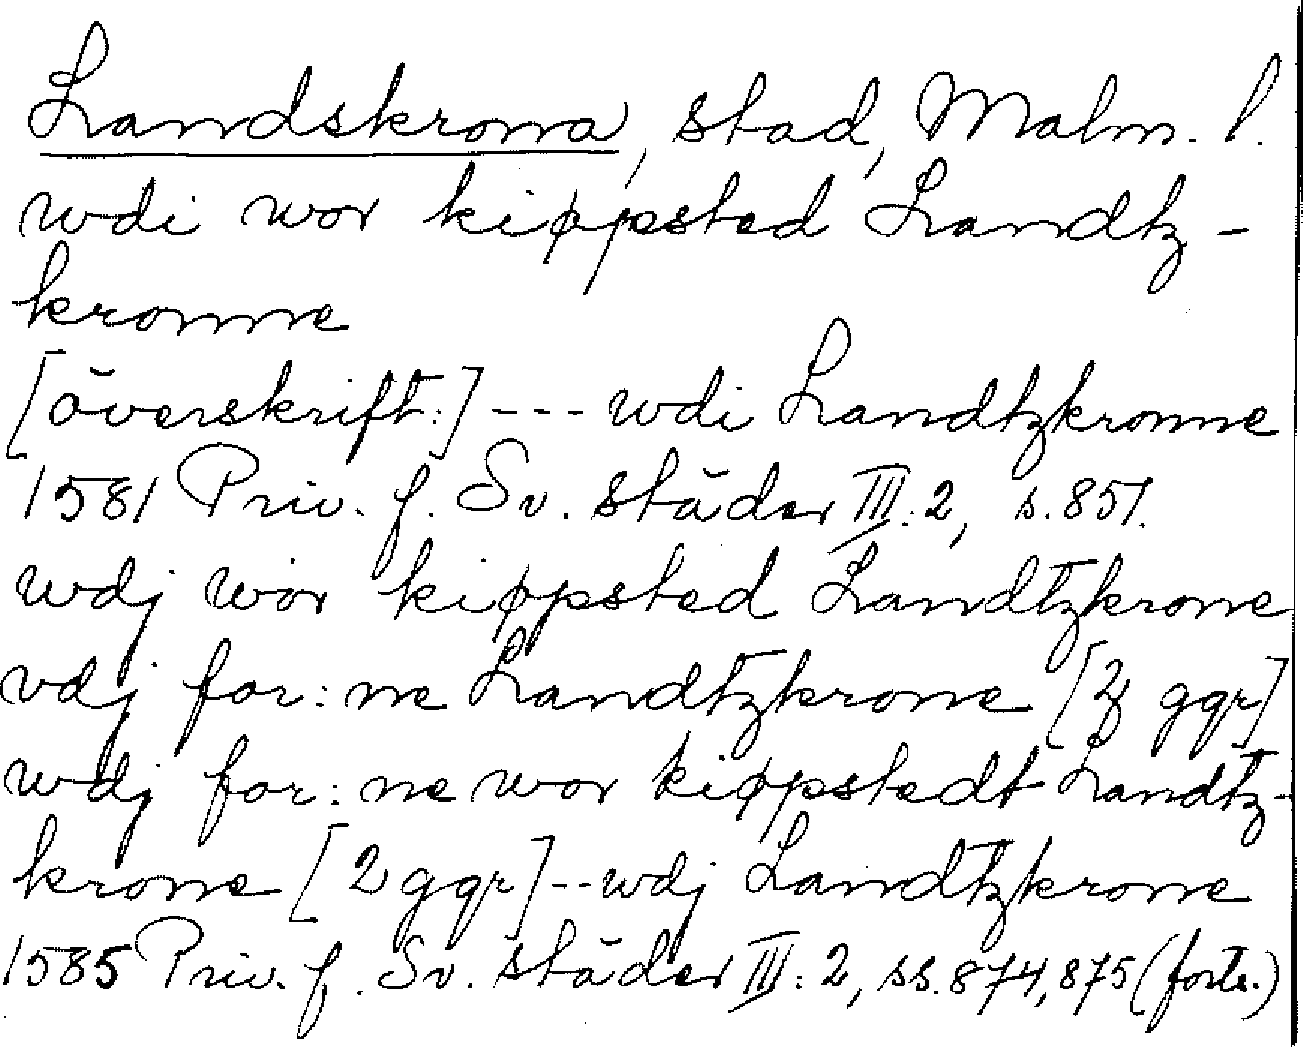 Landskrona, stad, Malm. l.
wdi wor kippsted Landtz-
kronne
[överskift:] --- wdi Landtzkronne
1581 Priv. f. Sv. städer III:2, s. 851.
wdj wor kippsted Landtzkrone
vdj for:ne Landtzkrone [2 ggr]
wdj for:ne wor kippstedt Landtz-
krone [2 ggr] -- wdj Landtzkrone
1585 Priv. f. Sv. städer III:2, ss. 874, 875 (forts.)